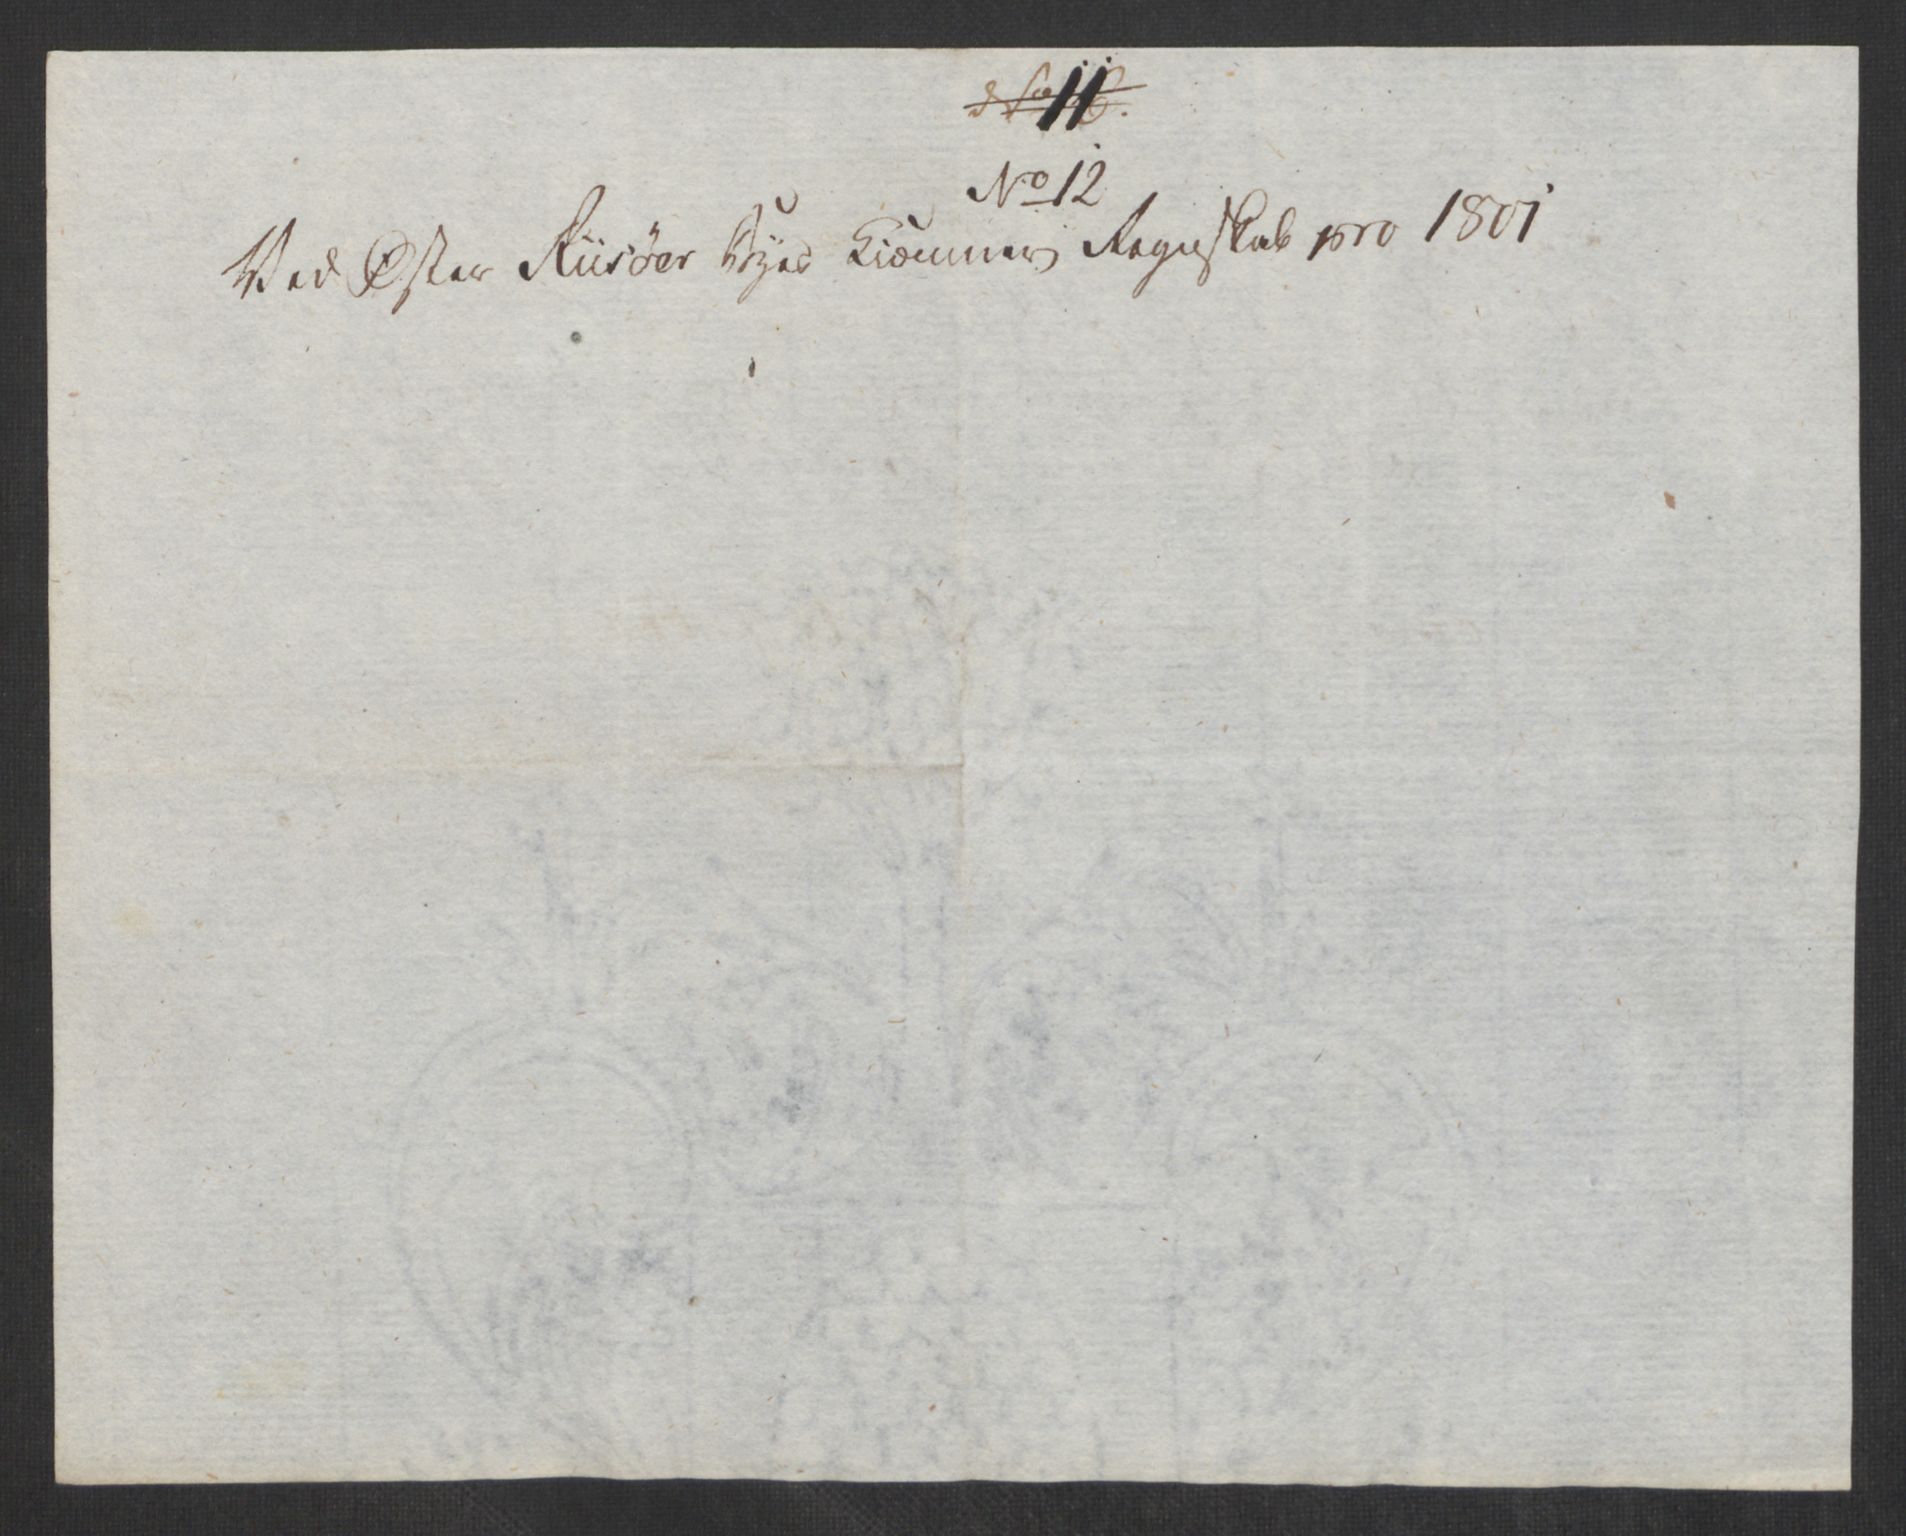 11
No 12
Ved Øster Riisöer Byes Kiemners Regnskab pro 1801